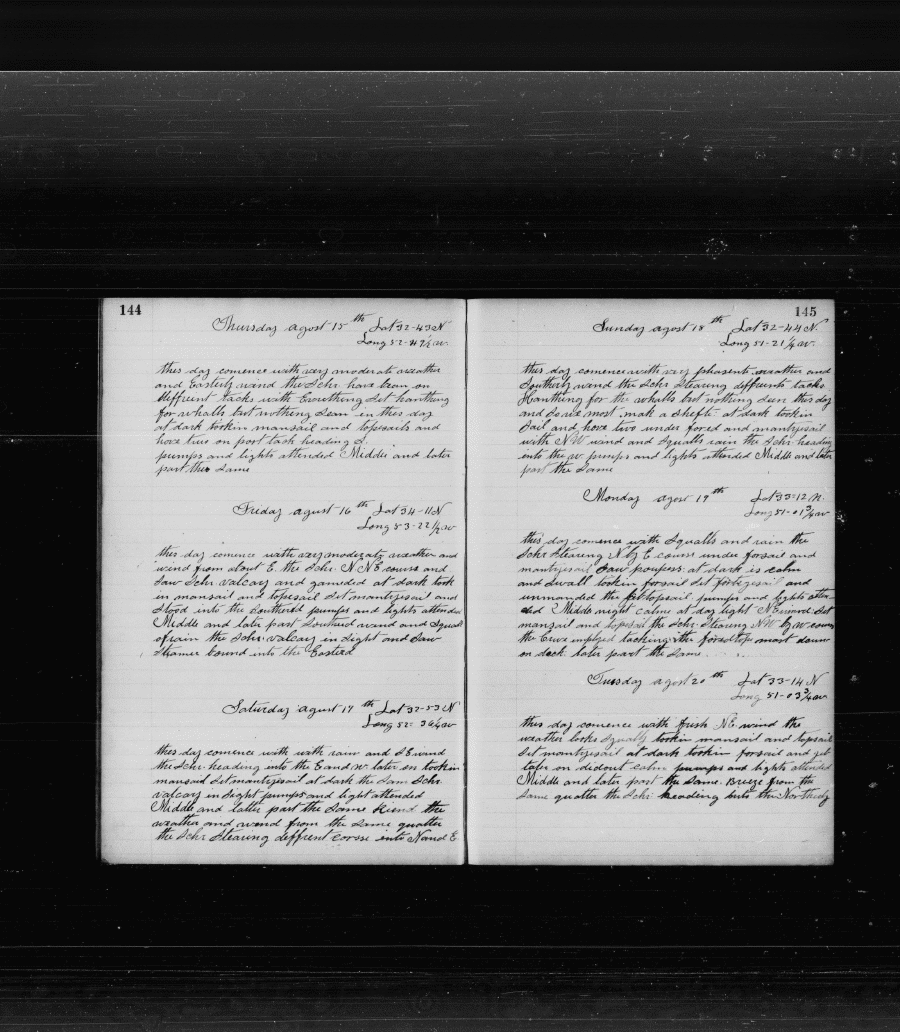 144
Thursday agost 15th Lat 32-43 N
Long 52-49½ w.
this day comence with very moderate weather
and Easterly wind the Schr. have bean on
deffrent tacks with Everything Set hanthing
for whalls but nothing Sean in this day
at dark tookin mansail and topsails and
hove tius on port tack heading S.
pumps and lights attended Middle and later
part the Same
Freday agust 16th Lat 34-11 N
Long 53-22½ w
this day comence with very moderatz weather and
wind from about E. the Schr. N NE course and
Saw Schr. valcary and gameded at dark took
in mansail and topesail Set mantzesail and
Stood into the Southerd pumps and lights attended
Middle and later part Southerd wind and Squals
of rain the Schr. valcary in Sight and Saw
Steamer bound into the Easterd
Saturday agust 17th Lat 32-53 N
Long 52-36¼ w
this day comence with with rain and SE wind
the Schr. heading into the E and w later on tookin
mansail Set mantzesail at dark the Sam Schr.
valcary in Sight pumps and light attended
Middle and latter part the Same kiend the
weather and wend from the Same quatter
the Schr Stearing deffrent corse into N and E
145
Sunday agost 18th Lat 32-44 N.
Long 51-21¼ w.
this day comence with very pleasent weather and
Southerly wind the Schr Stearing deffrents tacks
Hanthing for the whalls but nothing Seen this day
and Sewe most mak a at dark tookin
Sail and hove two under fored and mantzesail
with N W wind and Squalls rain the Schr. heading
into the w pumps and lights attended Middle and later
part the Same
Monday agost 19th Lat 33-12 N.
Long 51-01¾ w
this day comence with Squalls and rain the
Schr Stearing N by E course under forsail and
mantzesail Saw poupers. at dark is calm
and Swall tookin forsail Set and
unmanded the pumps and lights atten
ded Middle night calme at day light NE wind Set
mansail and topsail the Schr. Stearing NW by W cours
the Crew employed tacking the foretop mast down
on deck. later part the Same
Tuesday agost 20th Lat 33-14 N
Long 51-03¾ w
this day comence with fresh NE wind the
weather looks Squally tookin mansail and topsail
Set mantzesail at dark tookin forsail and geb
later on didout calm pumps and lights attended
Middle and later part the Same. Breeze from the
Same quatter the Schr. heading into the Northerly